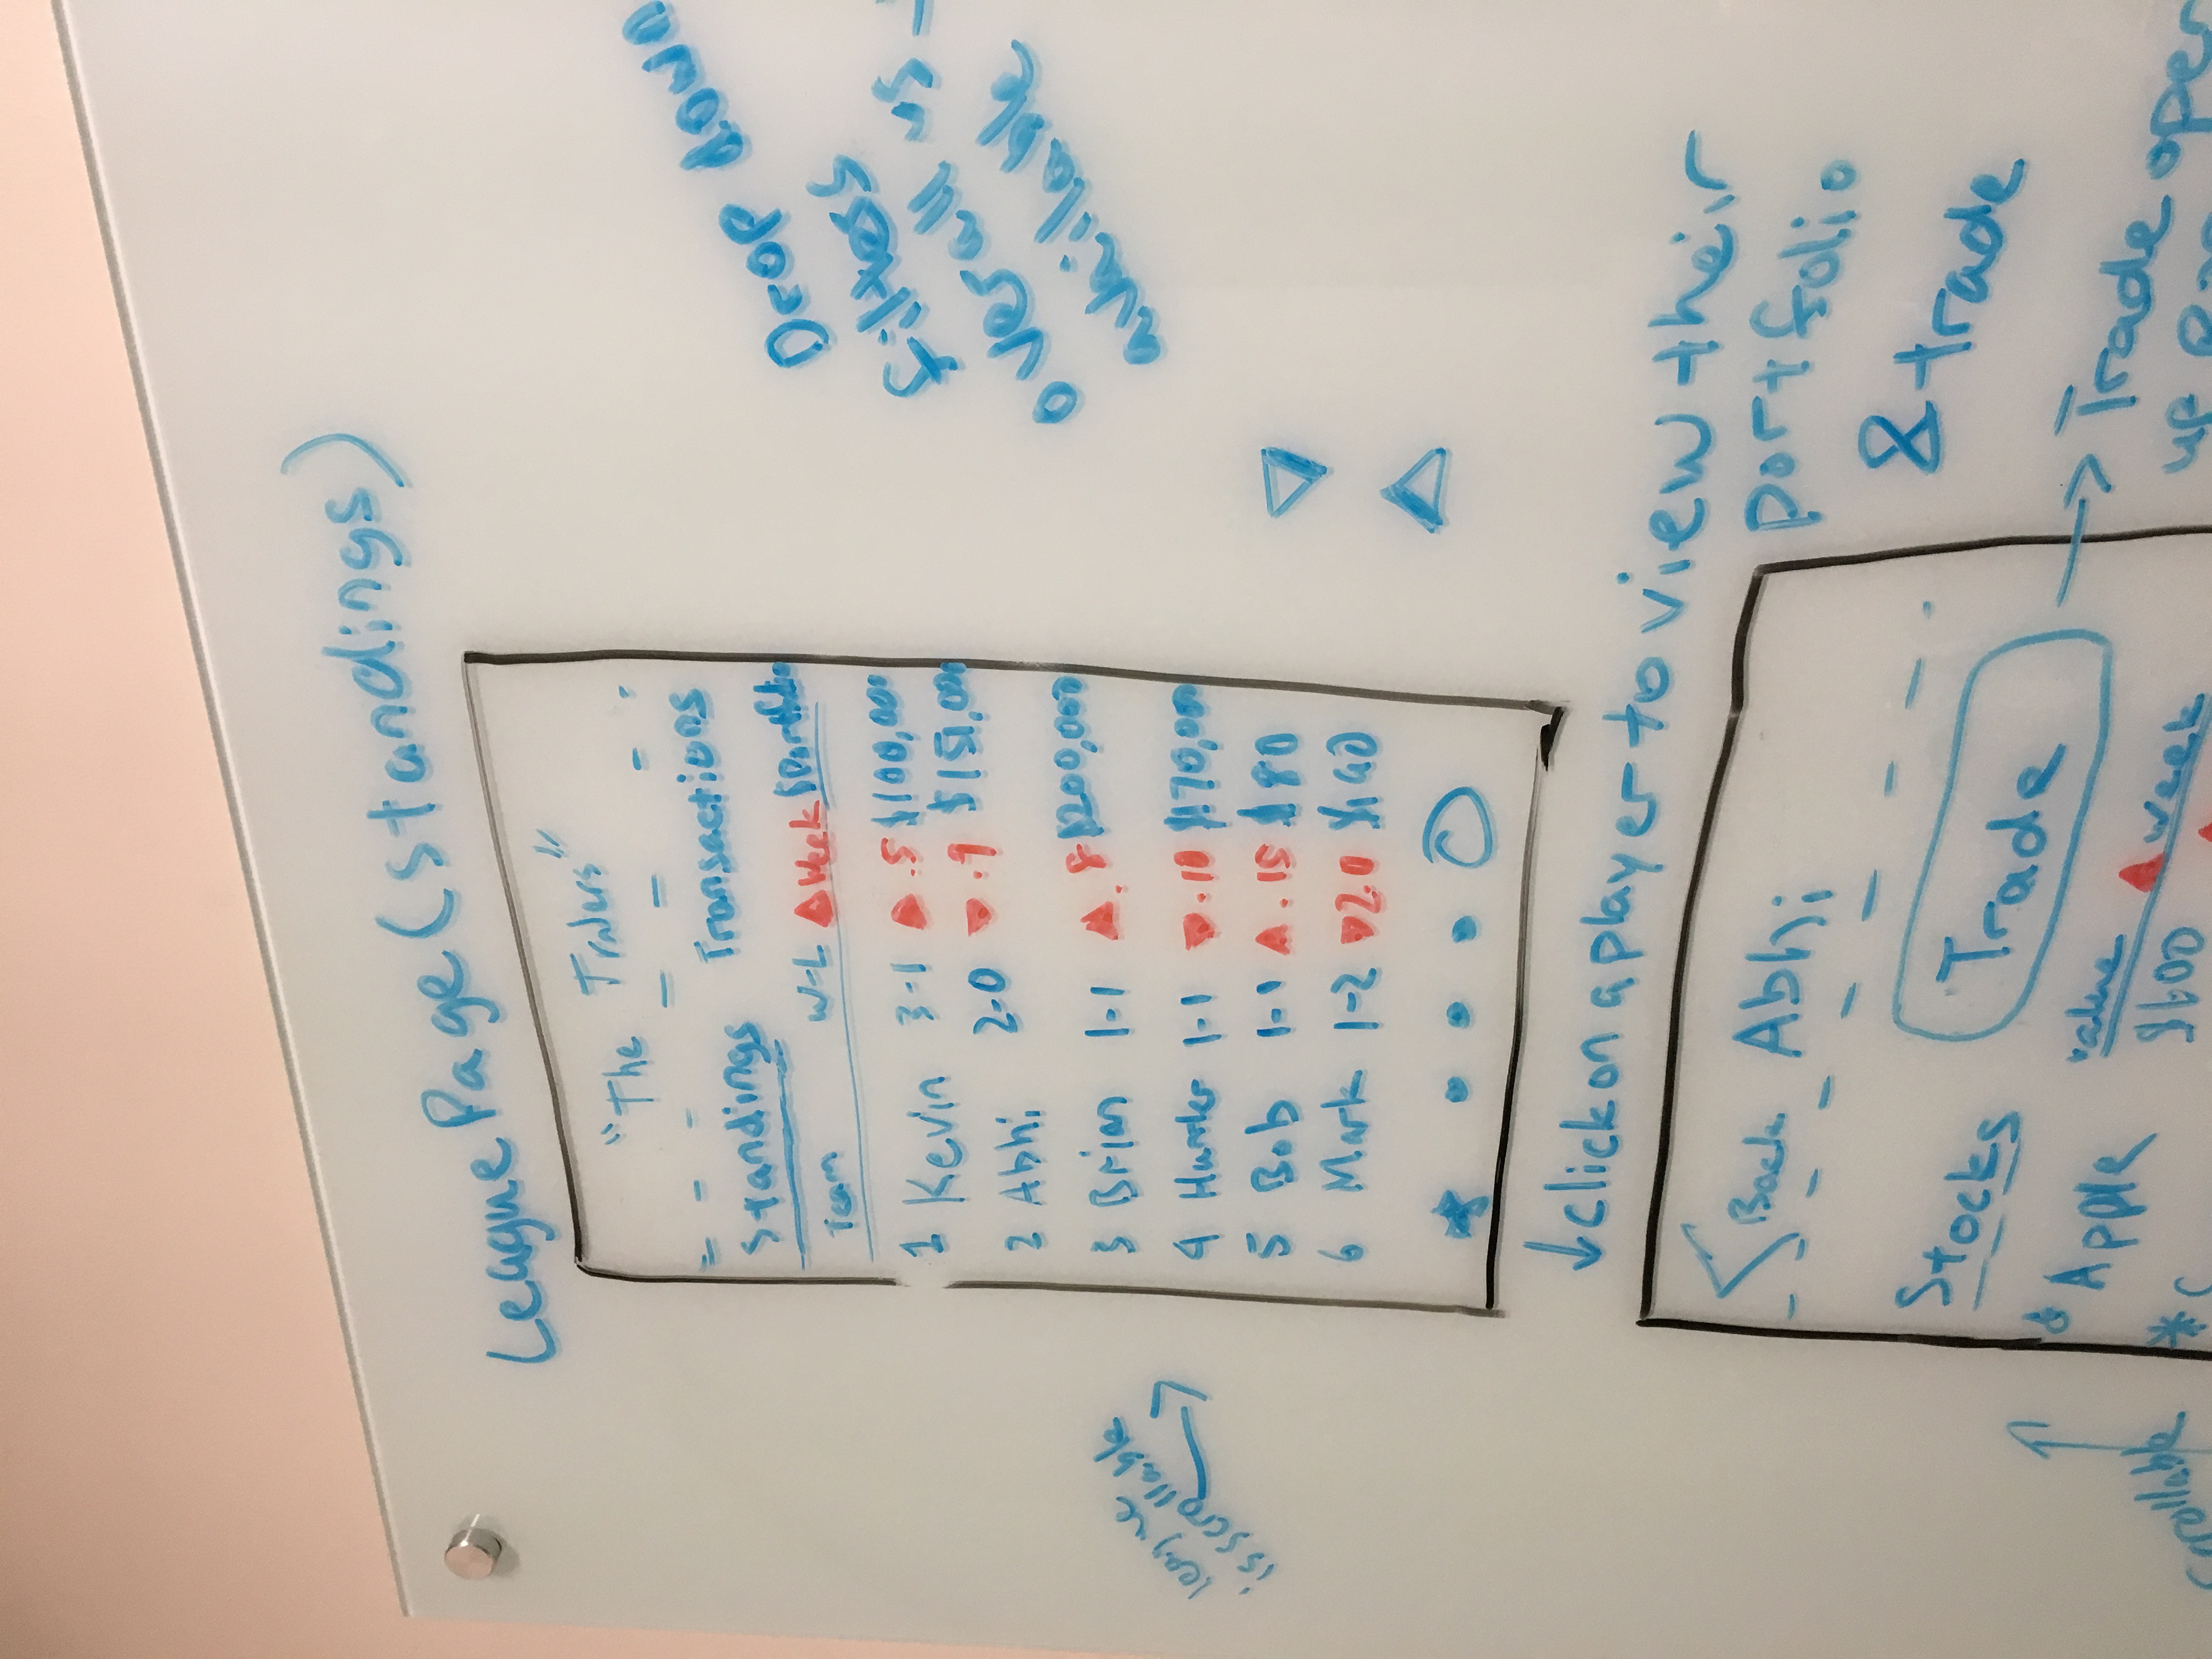 League Page (standings)
"The Traders"
Standings Transactions
Team W-L ▲Week $Portfolio
1 Kevin 3-1 ▲ .5 $100,000
2 Abhi 2-0 ▼ .9 $151,000
3 Brian 1-1 ▲ .8 $200,000
4 Hunter 1-1 ▼ .10 $170,000
5 Bob 1-1 ▲ .15 $80
6 Mark 1-2 ▼2.0 $140
league
is scrollable
Drop down
filters
overall vs
available
↓ click on a player to view their
portfolio
& trade
< Back Abhi
Stocks Trade
Apple value ▲ week
$600
→ Trade open
up
scrollable